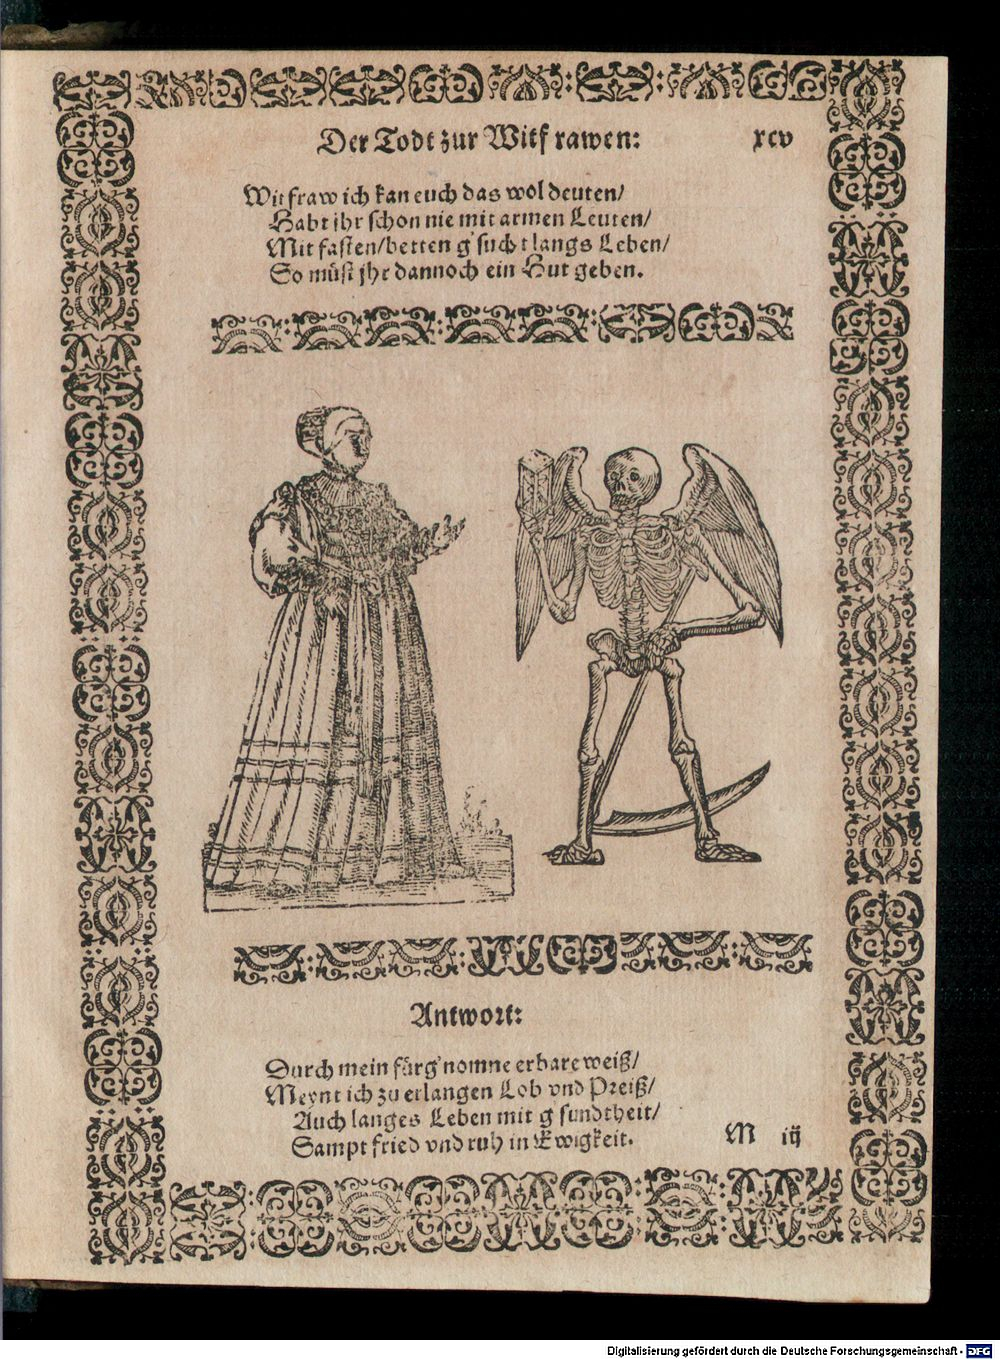 Der Todt zur Witfrawen: xcv
Witfraw ich kan euch das wol deuten/
Habt jhr schon nie mit armen Leuten/
Mit fasten/betten g'sucht langs Leben/
So müst jhr dannoch ein Hut geben.
Antwort:
Durch mein fürg'nomne erbare weiß/
Meynt ich zu erlangen Lob vnd Preiß/
Auch langes Leben mit g'sundtheit/
Sampt fried vnd ruh in Ewigkeit.
M iij
Digitalisierung gefördert durch die Deutsche Forschungsgemeinschaft - DFG